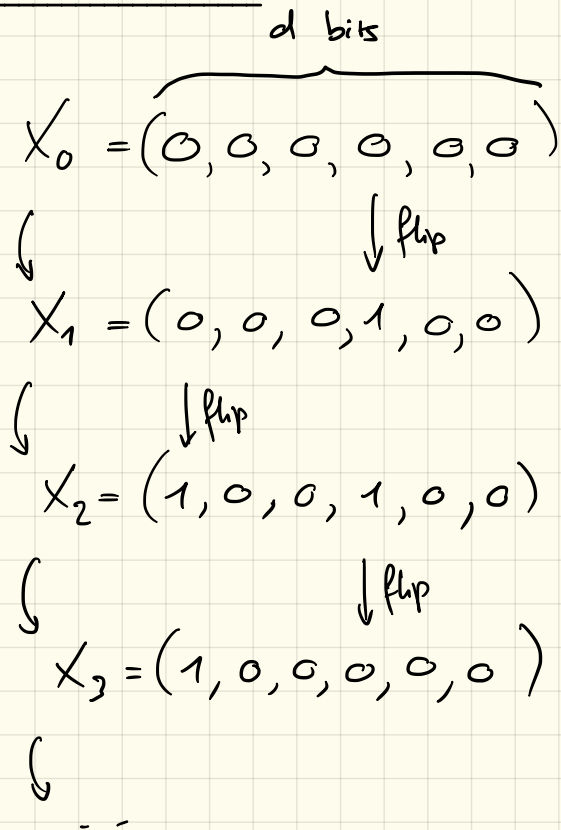 d bits
X₀ = (0, 0, 0, 0, 0, 0)
flip
X₁ = (0, 0, 0, 1, 0, 0)
flip
X₂ = (1, 0, 0, 1, 0, 0)
flip
X₃ = (1, 0, 0, 0, 0, 0)